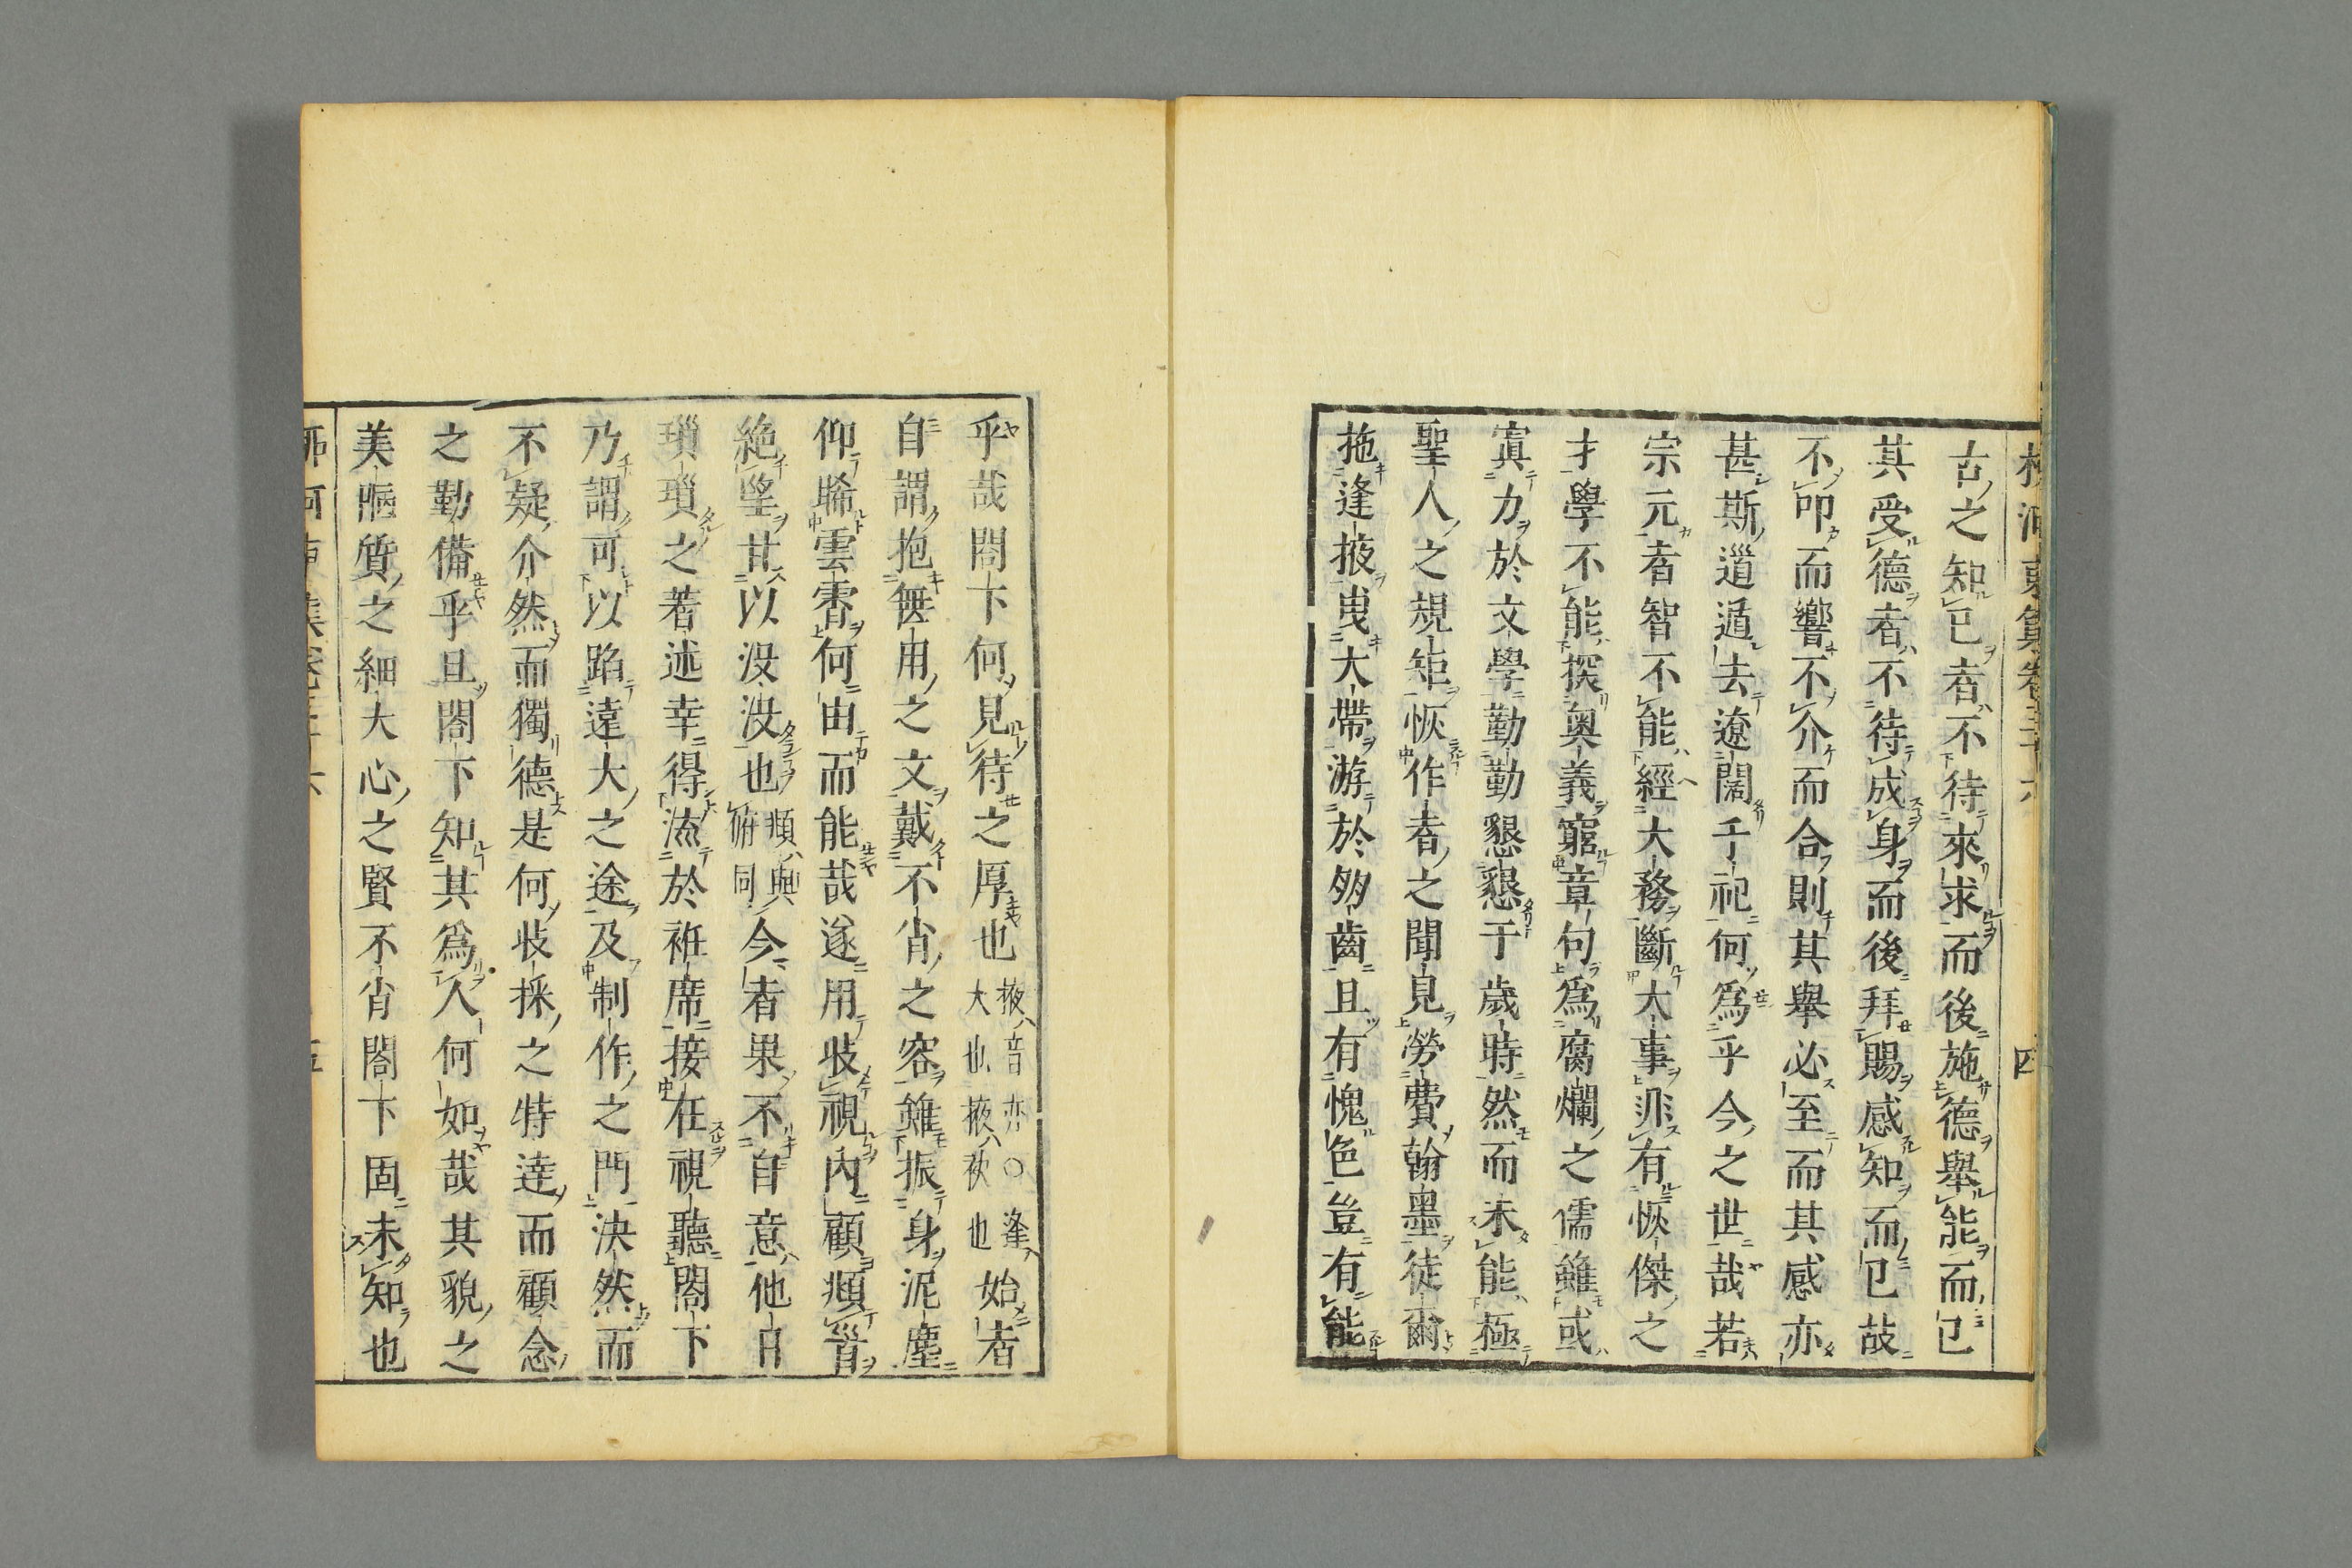 古之知已者不待來求而後施德舉能而已
其受德者不待成身而後拜賜感知而已故
不叩而響不介而合則其舉必至而其感亦
甚斯道遁去遼闊千祀何爲乎今之世哉若
宗元者智不能經大務斷大事非有恢傑之
才學不能探奧義窮章句爲腐爛之儒雖或
寘力於文學勤勤懇懇于歲時然而未能極
聖人之規矩恢作者之聞見勞費翰墨徒爾
拖逢掖曳大帶游於朋齒且有愧色豈有能
乎哉閤下何見待之厚也掖音亦○逢大也掖袂也始者
自謂抱無用之文戴不肖之容雖振身泥塵
仰睎雲霄何由而能哉遂用收視內顧頫首
絶望甘以没没也頫與俯同今者果不自意他日
瑣瑣之著述幸得流於袵席接在視聽閤下
乃謂可以蹈遠大之途及制作之門決然而
不疑介然而獨德是何收採之特達而顧念
之勤備乎且閤下知其爲人何如哉其貌之
美陋質之細大心之賢不肖閤下固未知也